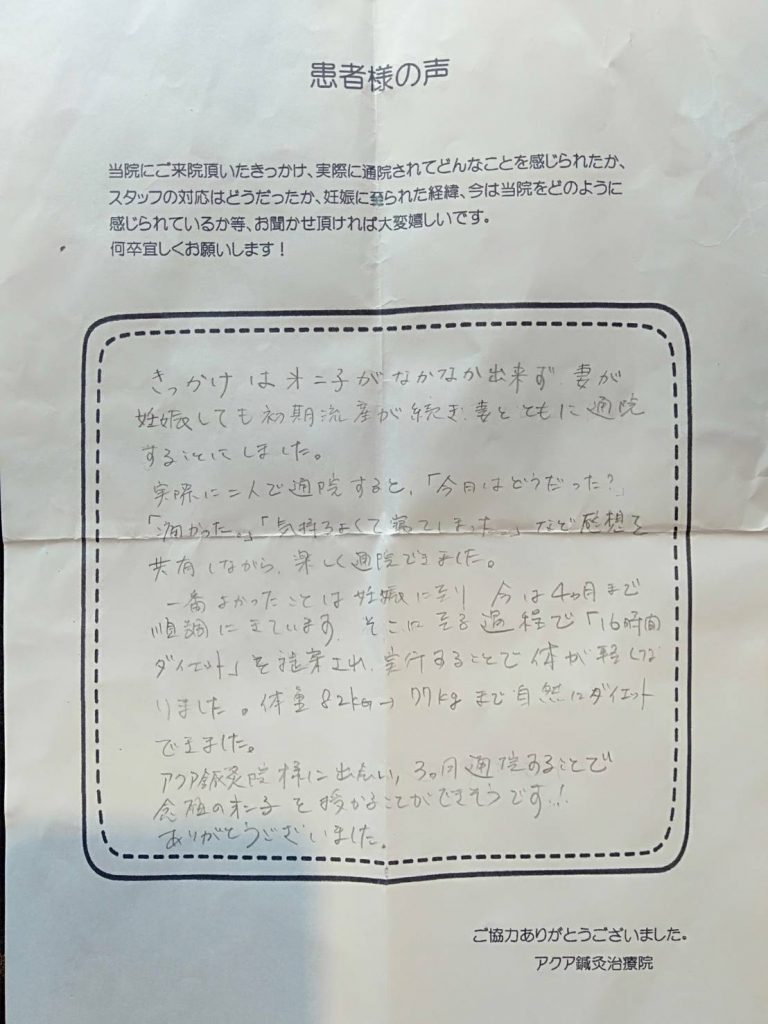 患者様の声
当院にご来院頂いたきっかけ、実際に通院されてどんなことを感じられたか、
スタッフの対応はどうだったか、妊娠に至られた経緯、今は当院をどのように
感じられているか等、お聞かせ頂ければ大変嬉しいです。
何卒宜しくお願いします！
きっかけは㐧二子がなかなか出来ず、妻が
妊娠しても初期流産が続き、妻とともに通院
することにしました。
実際に二人で通院すると、「今日はどうだった?」
「痛かった。」「気持ちよくて寝てしまった…」など感想を
共有しながら、楽しく通院できました。
一番よかったことは妊娠に至り 今は4ヵ月まで
順調にきています。そこに至る過程で「16時間
ダイエット」を提案され、実行することで体が軽くな
りました。体重82kg→77kgまで自然にダイエット
できました。
アクア鍼灸院様に出会い、3ヶ月通院することで
念願の㐧二子を授かることができそうです!!
ありがとうございました。
ご協力ありがとうございました。
アクア鍼灸治療院